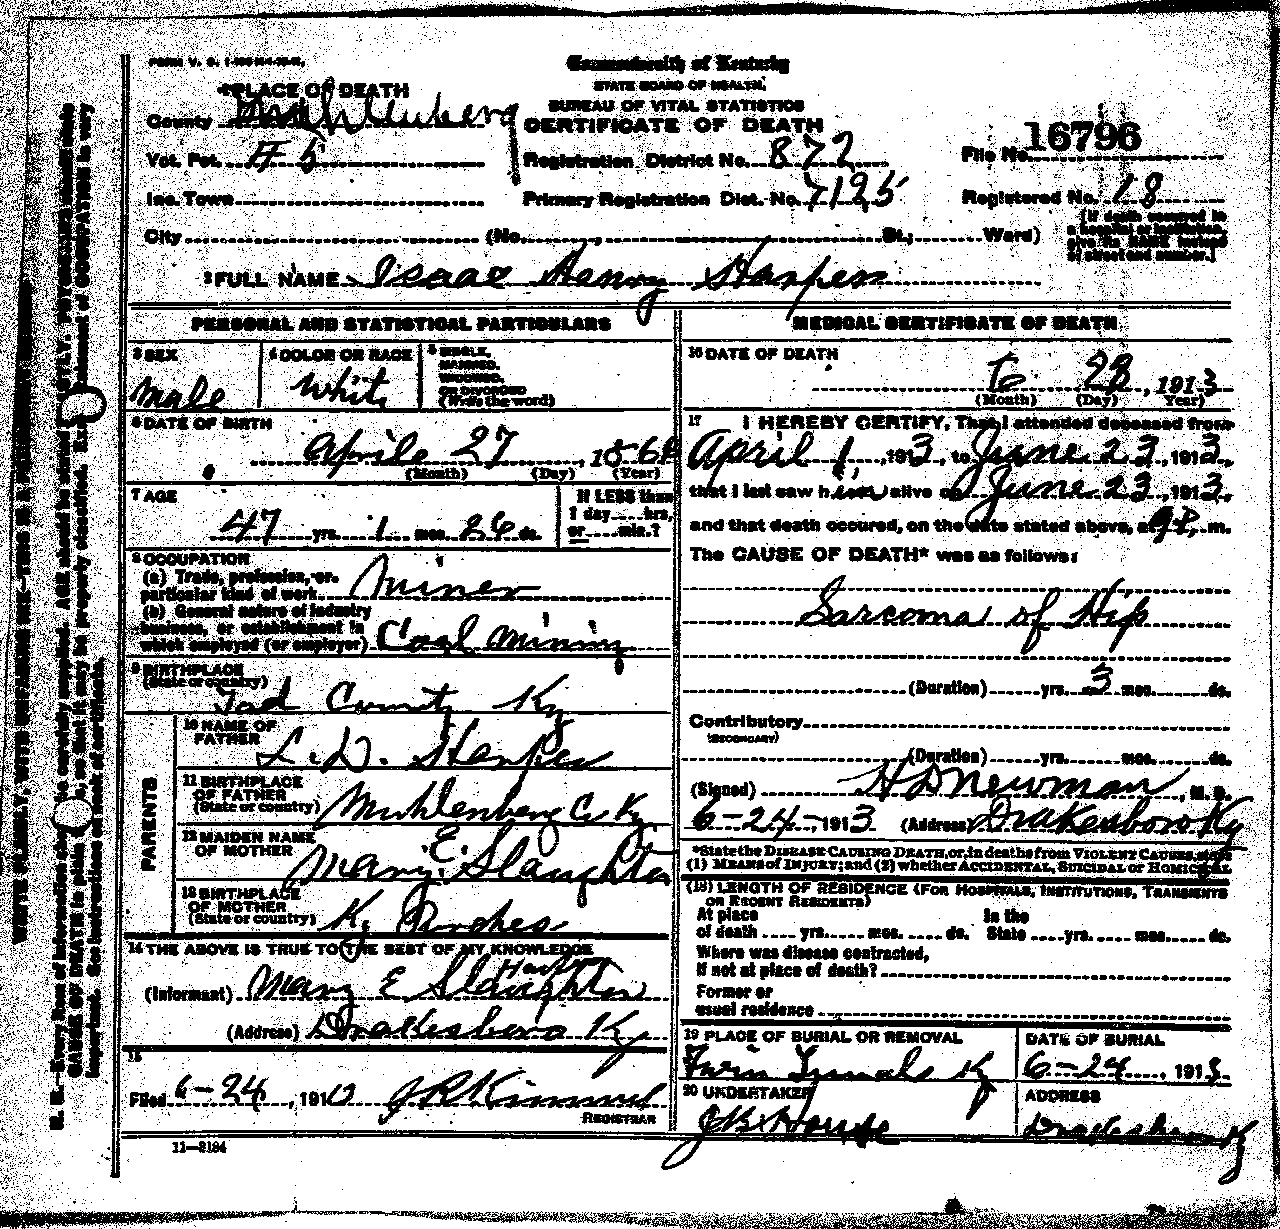 Commonwealth of Kentucky
STATE BOARD OF HEALTH.
BUREAU OF VITAL STATISTICS
CERTIFICATE OF DEATH
1 PLACE OF DEATH
County Muhlenberg
Vot. Pct. # 5
Inc. Town
Registration District No. 872
Primary Registration Dist. No. 7195
File No. 16796
Registered No. 18
City (No. , St.; Ward)
[If death occurred in
a hospital or institution,
give its NAME instead
of street and number.]
2 FULL NAME Isaac Henry Harper
PERSONAL AND STATISTICAL PARTICULARS
3 SEX
male
4 COLOR OR RACE
White
5 SINGLE,
MARRIED,
WIDOWED,
OR DIVORCED
(Write the word)
6 DATE OF BIRTH
Aprile 27, 186
(Month) (Day) (Year)
7 AGE
47 yrs. 1 mos. 26 ds.
If LESS than
1 day hrs.
or min.?
8 OCCUPATION
(a) Trade, profession, or
particular kind of work Miner
(b) General nature of industry
business, or establishment in
which employed (or employer) Coal Mining
9 BIRTHPLACE
(State or country)
Tod County Ky
PARENTS
10 NAME OF
FATHER
L. D. Harper
11 BIRTHPLACE
OF FATHER
(State or country) Muhlenberg C. Ky
12 MAIDEN NAME
OF MOTHER
Mary. E. Slaughter
13 BIRTHPLACE
OF MOTHER
(State or country) K.
14 THE ABOVE IS TRUE TO THE BEST OF MY KNOWLEDGE
Harper
(Informant) Mary E Slaughter
(Address) Drakesboro Ky
15
Filed 6-24, 1913 J R Kimmel
REGISTRAR
11-3184
MEDICAL CERTIFICATE OF DEATH
16 DATE OF DEATH
6 23, 1913
(Month) (Day) (Year)
17 I HEREBY CERTIFY, That I attended deceased from
April 1, 1913, to June 23, 1913,
that I last saw h alive on June 23, 1913,
and that death occured, on the date stated above, at 9P. m.
The CAUSE OF DEATH* was as follows:
Sarcoma of Hip
(Duration) yrs. 3 mos. ds.
Contributory
(SECONDARY)
(Duration) yrs. mos. ds.
(Signed) H D Newman, M. D.
6-24-, 1913 (Address) Drakesboro Ky
*State the DISEASE CAUSING DEATH, or, in deaths from VIOLENT CAUSES, state
(1) MEANS OF INJURY; and (2) whether ACCIDENTAL, SUICIDAL or HOMICIDAL
(18) LENGTH OF RESIDENCE (FOR HOSPITALS, INSTITUTIONS, TRANSIENTS
OR RECENT RESIDENTS)
At place In the
of death yrs. mos. ds. State yrs. mos. ds.
Where was disease contracted,
if not at place of death?
Former or
usual residence
19 PLACE OF BURIAL OR REMOVAL
Ky
DATE OF BURIAL
6-24, 1913
20 UNDERTAKER
ADDRESS
Drakesboro Ky